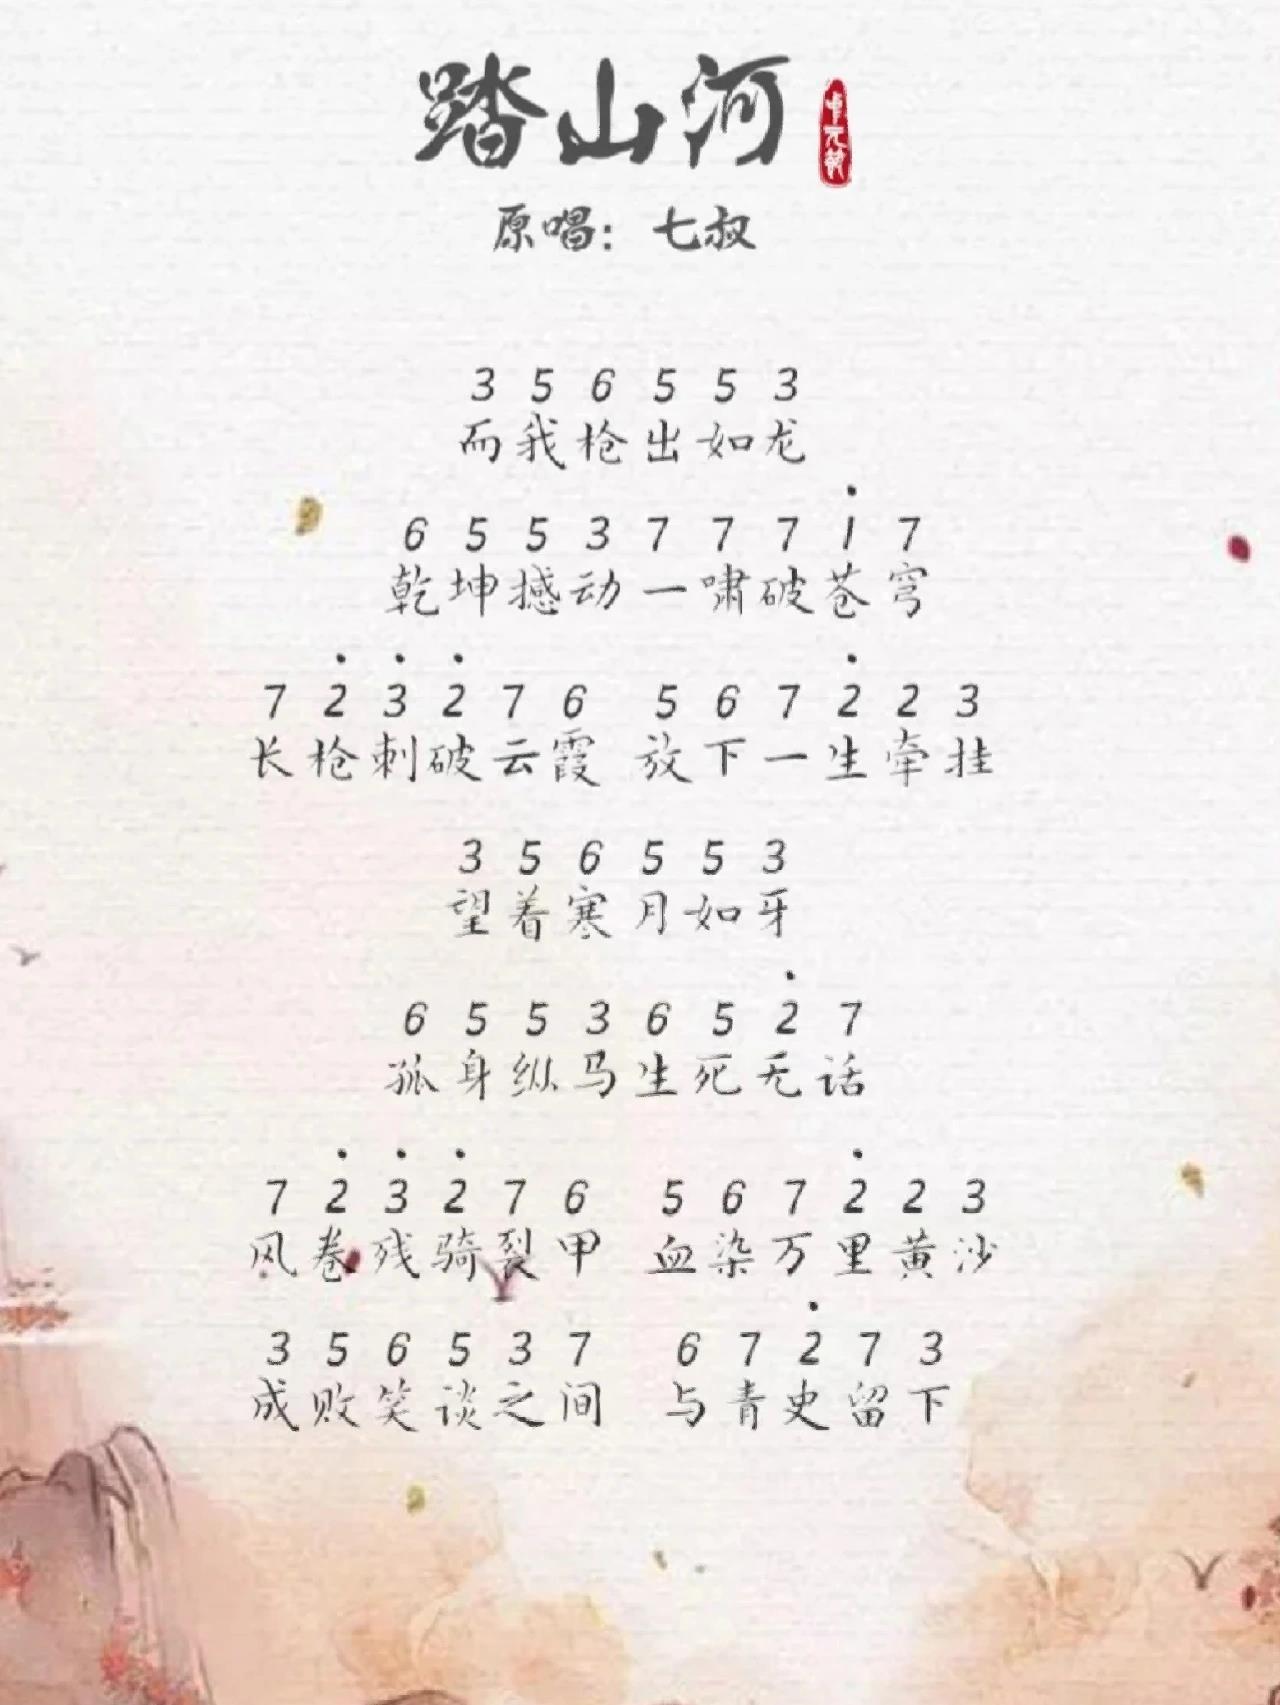 踏山河
卓元敏
原唱：七叔
3 5 6 5 5 3
而我枪出如龙
6 5 5 3 7 7 7 1̇ 7
乾坤撼动一啸破苍穹
7 2̇ 3̇ 2̇ 7 6 5 6 7 2̇ 2 3
长枪刺破云霞 放下一生牵挂
3 5 6 5 5 3
望着寒月如牙
6 5 5 3 6 5 2̇ 7
孤身纵马生死无话
7 2̇ 3̇ 2̇ 7 6 5 6 7 2̇ 2 3
风卷残骑裂甲 血染万里黄沙
3 5 6 5 3 7 6 7 2̇ 7 3
成败笑谈之间 与青史留下